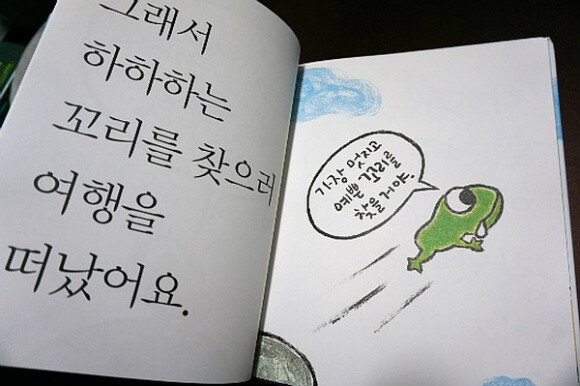 그래서
하하하는
꼬리를 찾으러
여행을
떠났어요.
가장 멋지고
예쁜 꼬리를
찾을거야.